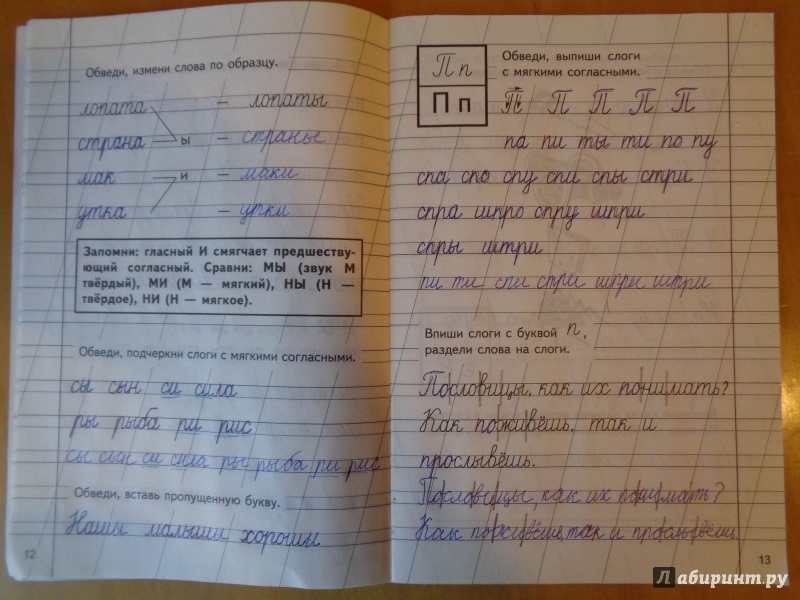 Обведи, измени слова по образцу.
лопата – лопаты
страна ы – страны
мак и – маки
утка – утки
Запомни: гласный И смягчает предшеству-
ющий согласный. Сравни: МЫ (звук М
твёрдый), МИ (М — мягкий), НЫ (Н —
твёрдое), НИ (Н — мягкое).
Обведи, подчеркни слоги с мягкими согласными.
сы сын си сила
ры рыба ри рис
сы сын си сила ры рыба ри рис
Обведи, вставь пропущенную букву.
Наши малыши хороши
12
П п
П п
Обведи, выпиши слоги
с мягкими согласными.
П П П П П
па пи ты ти по пу
спа спо спу спи спы стри
спра шпро спру шпри
спры штри
пи ти спи стри шпри штри
Впиши слоги с буквой п,
раздели слова на слоги.
Пословицы, как их понимать?
Как поживёшь, так и
прослывёшь.
Пословицы, как их понимать?
Как поживёшь, так и прослывёшь.
13
Лабиринт.ру